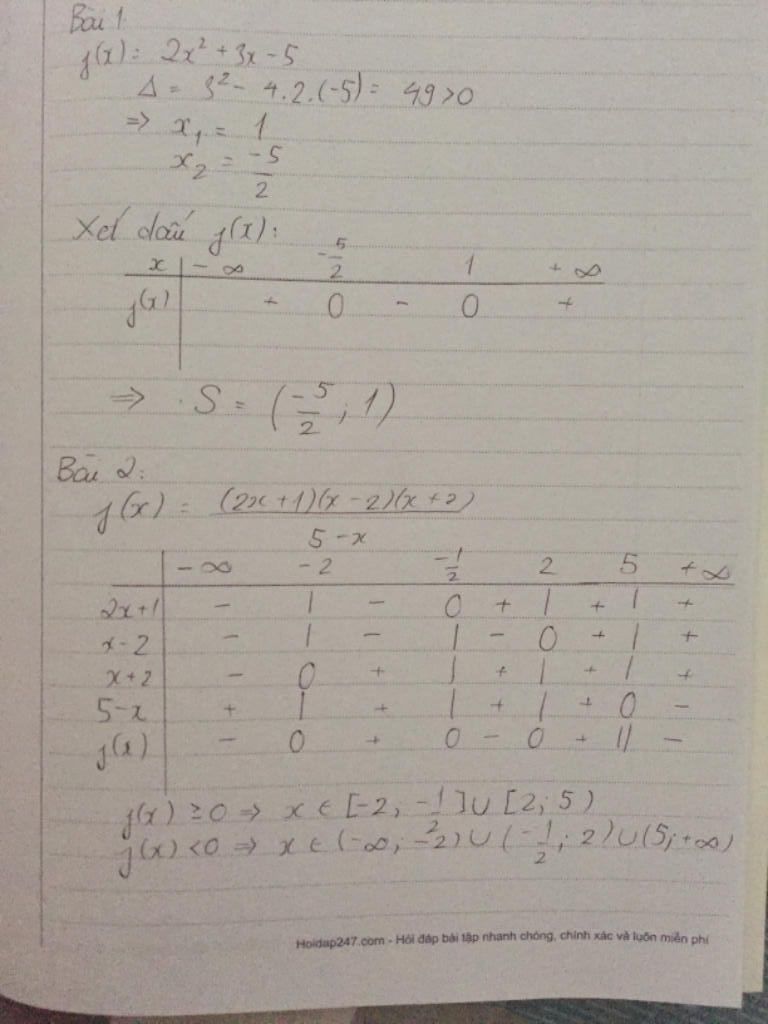 Bài 1
f(x) = 2x² + 3x - 5
Δ = 3² - 4.2.(-5) = 49 > 0
=> x₁ = 1
x₂ = -5/2
Xét dấu f(x):
x | -∞ -5/2 1 +∞
f(x) | + 0 - 0 +
=> S = (-5/2 ; 1)
Bài 2:
f(x) = (2x+1)(x-2)(x+2)
5-x
-∞ -2 -1/2 2 5 +∞
2x+1 | - | - 0 + | + | +
x-2 | - | - | - 0 + | +
x+2 | - 0 + | + | + | +
5-x | + | + | + | + 0 -
f(x) | - 0 + 0 - 0 + || -
f(x) ≥ 0 => x ∈ [-2; -1/2] ∪ [2; 5)
f(x) < 0 => x ∈ (-∞; -2) ∪ (-1/2; 2) ∪ (5; +∞)
Hoidap247.com - Hỏi đáp bài tập nhanh chóng, chính xác và luôn miễn phí